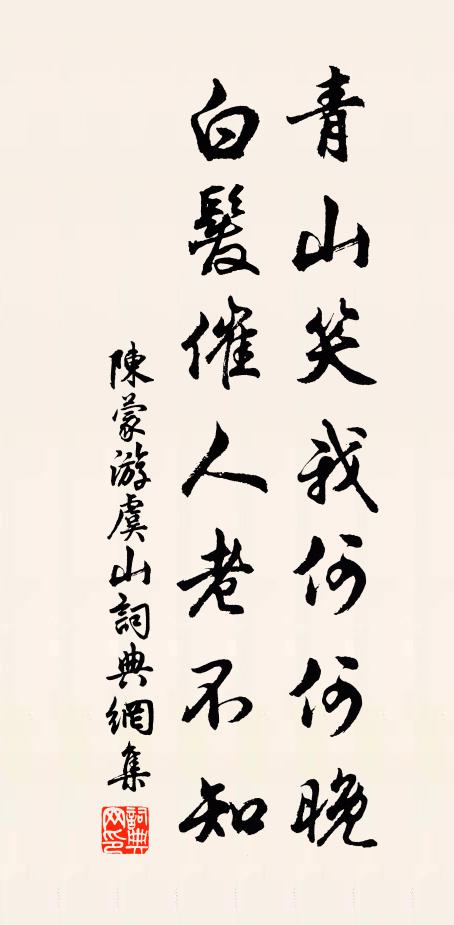 青山笑我何何晚
白髮催人老不知
陳蒙游虞山詞典網集
詞典网印